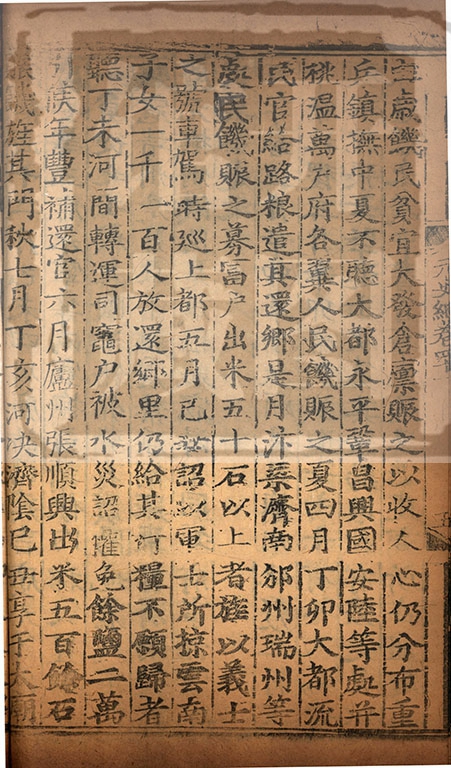 歲饑民貧宜大發倉廩賑之以收人心仍分布重
兵鎮撫中夏不聽大都永平鞏昌興國安陸等處并
桃溫萬户府各翼人民饑賑之夏四月丁卯大都流
民官給路粮遣其還鄉是月汴梁濟南邠州瑞州等
處民饑賑之募富户出米五十石以上者旌以義士
之號車駕時巡上都五月己丑詔以軍士所掠雲南
子女一千一百人放還鄉里仍給其行糧不願歸者
聽丁未河間轉運司竈户被水災詔權免餘鹽二萬
引俟年豐補還官六月廬州張順興出米五百餘石
賑饑旌其門秋七月丁亥河決濟陰己丑享于太廟